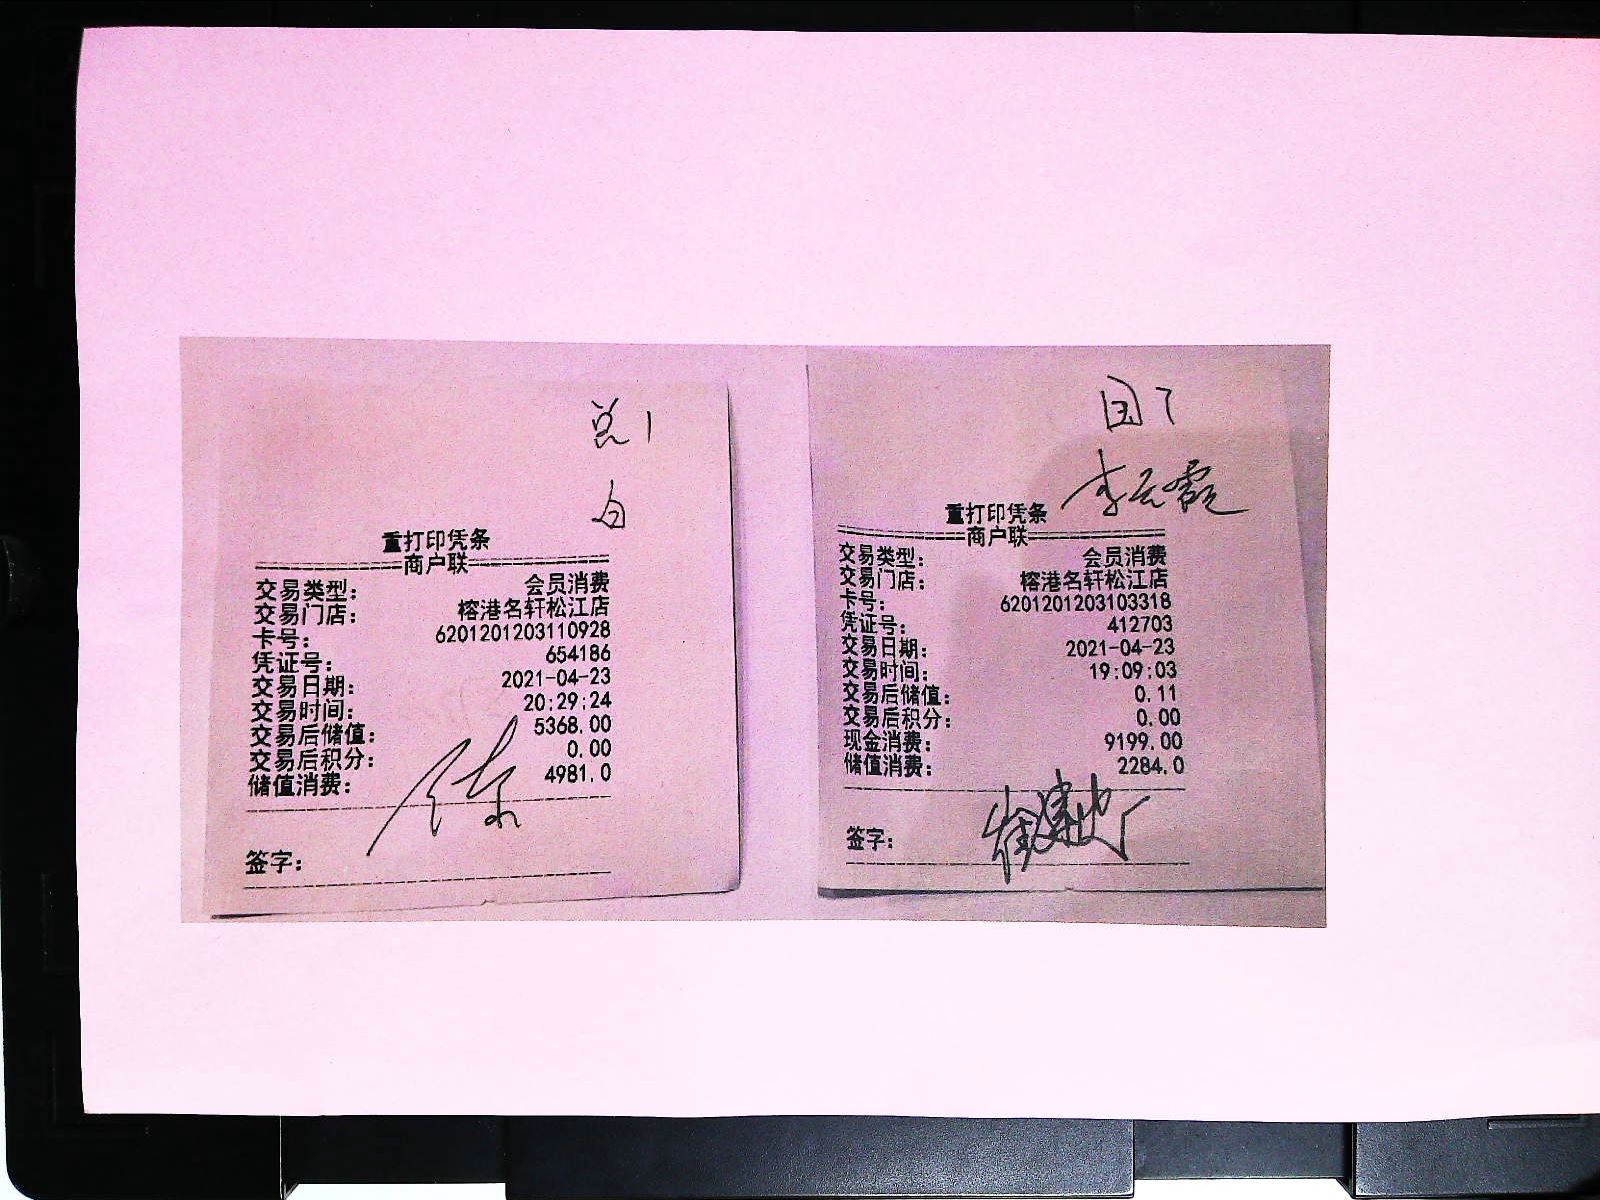 总1
白
重打印凭条
商户联
交易类型： 会员消费
交易门店： 榕港名轩松江店
卡号： 6201201203110928
凭证号： 654186
交易日期： 2021-04-23
交易时间： 20:29:24
交易后储值： 5368.00
交易后积分： 0.00
储值消费： 4981.0
签字：
李云霞
重打印凭条
商户联
交易类型： 会员消费
交易门店： 榕港名轩松江店
卡号： 6201201203103318
凭证号： 412703
交易日期： 2021-04-23
交易时间： 19:09:03
交易后储值： 0.11
交易后积分： 0.00
现金消费： 9199.00
储值消费： 2284.0
签字：